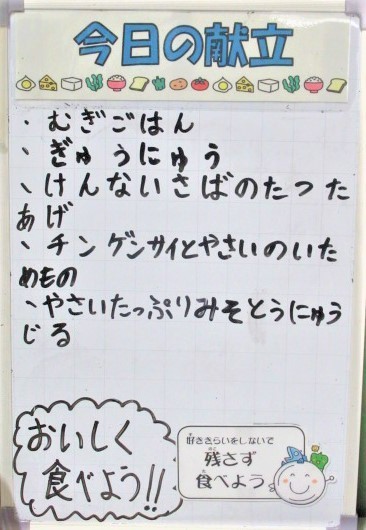 今日の献立
、むぎごはん
、ぎゅうにゅう
、けんないさばのたつた
あげ
、チンゲンサイとやさいのいた
めもの
、やさいたっぷりみそとうにゅう
じる
おいしく
食べよう!!
好ききらいをしないで
残さず
食べよう